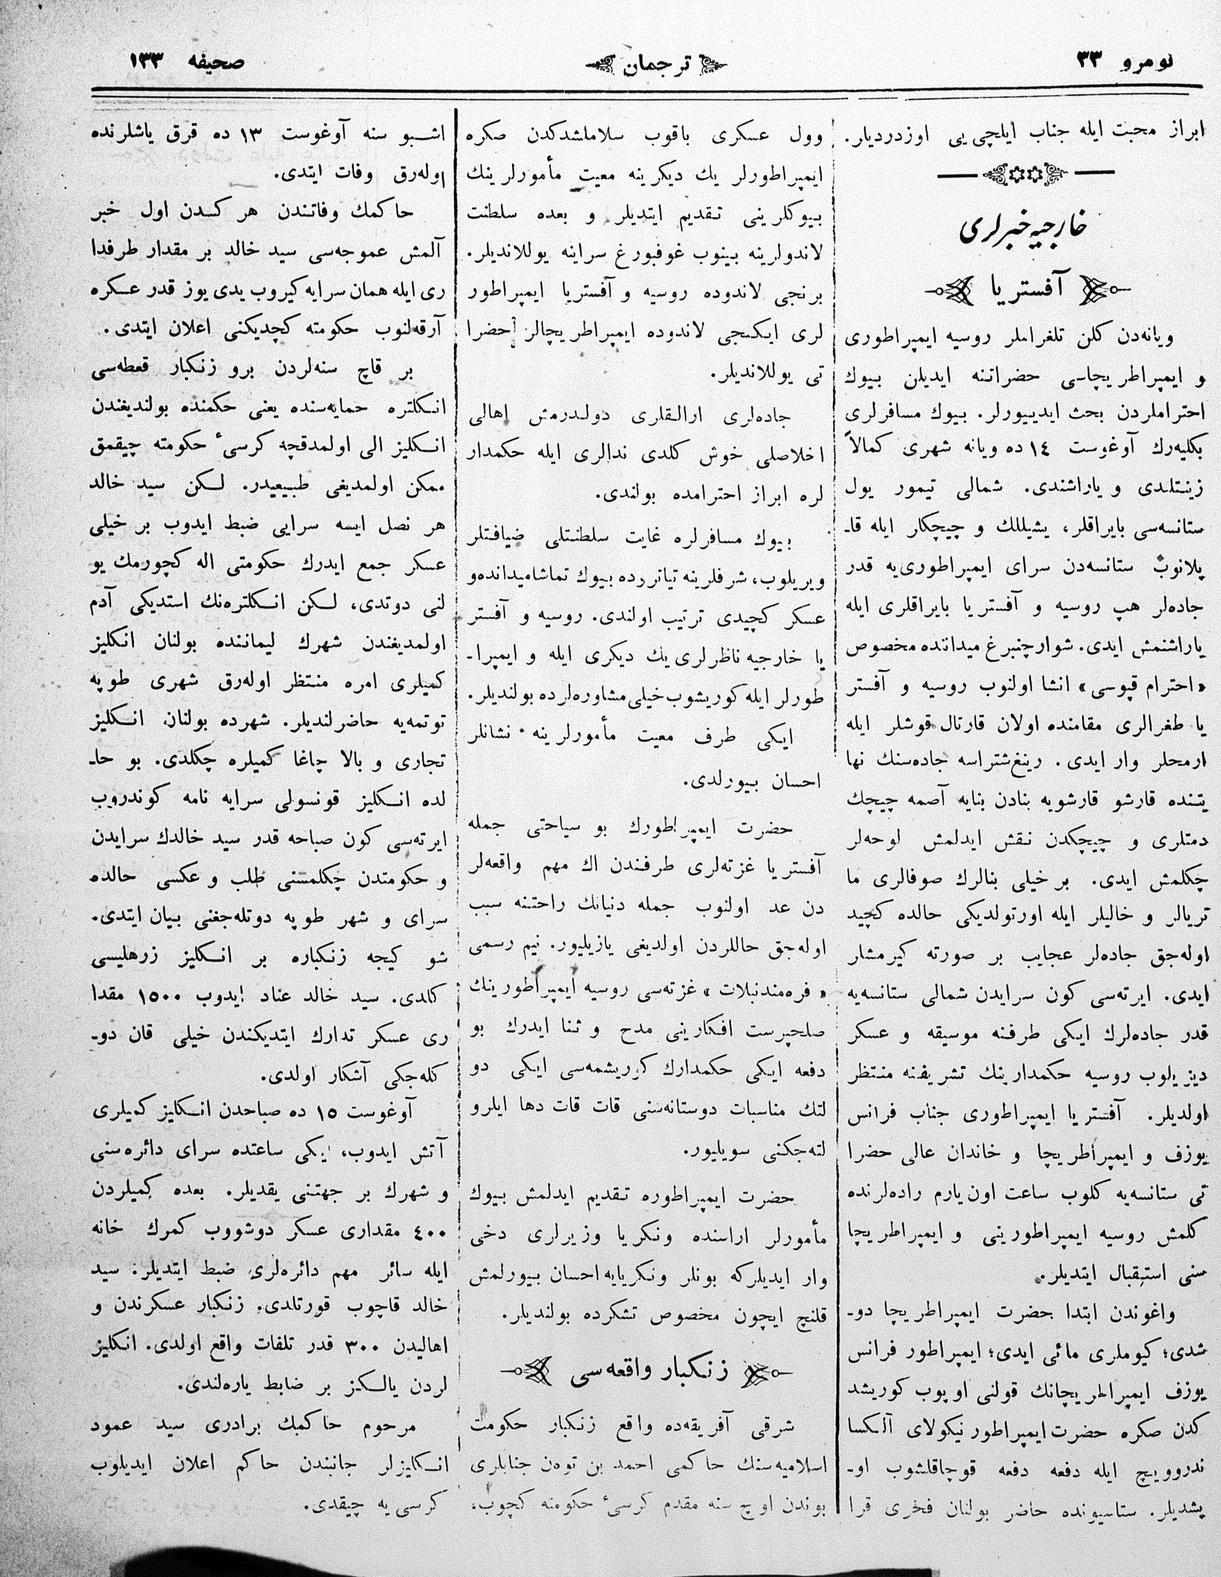 نومرو ٣٣
ترجمان
صحیفه ١٣٣
ابراز محبت ایله جناب ایلچی یی اوزدردیار.
خارجیه خبرلری
آفستریا
ویانه‌دن کلن تلغراملر روسیه ایمپراطوری
و ایمپراطریچاسی حضراتنه ایدیلن بیوك
احتراملردن بحث ایدییورلر. بیوك مسافرلری
بکلیه‌رك آوغوست ١٤ ده ویانه شهری کمالاً
زینتلندی و یاراشندی. شمالی تیمور یول
ستانسه‌سی بایراقلر، یشیللك و چیچکلر ایله قاـ
پلانوب ستانسه‌دن سرای ایمپراطوری‌یه قدر
جاده‌لر هپ روسیه و آفستریا بایراقلری ایله
یاراشنمش ایدی. شوارچنبرغ میداننده مخصوص
«احترام قپوسی» انشا اولنوب روسیه و آفستر
یا طغرالری مقامنده اولان قارتال قوشلر ایله
ارمحلر وار ایدی. رینغ‌شتراسه جاده‌سنك نها
یتنده قارشو قارشویه بنادن بنایه آصمه چیچك
دمتلری و چیچکدن نقش ایدلمش لوحه‌لر
چکلمش ایدی. بر خیلی بنالرك صوفالری ما
تریالر و خالیلر ایله اورتولدیکی حالده کچید
اوله‌جق جاده‌لر عجایب بر صورته کیرمشلر
ایدی. ایرته‌سی کون سرایدن شمالی ستانسه‌یه
قدر جاده‌لرك ایکی طرفنه موسیقه و عسکر
دیزیلوب روسیه حکمدارینك تشریفنه منتظر
اولدیلر. آفستریا ایمپراطوری جناب فرانس
یوزف و ایمپراطریچا و خاندان عالی حضرا
تی ستانسه‌یه کلوب ساعت اون یارم راده‌لرنده
کلمش روسیه ایمپراطورینی و ایمپراطریچا
سنی استقبال ایتدیلر.
واغوندن ابتدا حضرت ایمپراطریچا دوـ
شدی؛ کیوملری مائی ایدی؛ ایمپراطور فرانس
یوزف ایمپراطریچانك قولنی اوپوب کوریشد
کدن صکره حضرت ایمپراطور نیکولای آلکسا
ندروویچ ایله دفعه دفعه قوچاقلشوب اوـ
پشدیلر. ستاسیونده حاضر بولنان فخری قرا
وول عسکری باقوب سلاملشدکدن صکره
ایمپراطورلر یك دیکرینه معیت مأمورلرینك
بیوکلرینی تقدیم ایتدیلر و بعده سلطنت
لاندولرینه بینوب غوفبورغ سراینه یوللاندیلر.
برنجی لاندوده روسیه و آفستریا ایمپراطور
لری ایکنجی لاندوده ایمپراطریچالر حضرا
تی یوللاندیلر.
جاده‌لری ارالقلری دولدرمش اهالی
اخلاصلی خوش کلدی ندالری ایله حکمدار
لره ابراز احترامده بولندی.
بیوك مسافرلره غایت سلطنتلی ضیافتلر
ویریلوب، شرفلرینه تیاترده بیوك تماشا میدانده و
عسکر کچیدی ترتیب اولندی. روسیه و آفستر
یا خارجیه ناظرلری یك دیکری ایله و ایمپراـ
طورلر ایله کوریشوب خیلی مشاوره‌لرده بولندیلر.
ایکی طرف معیت مأمورلرینه نشانلر
احسان بیورلدی.
حضرت ایمپراطورك بو سیاحتی جمله
آفستریا غزته‌لری طرفندن اك مهم واقعه‌لر
دن عد اولنوب جمله دنیانك راحتنه سبب
اوله‌جق حاللردن اولدیغی یازیلیور. نیم رسمی
«فره‌مدنبلات» غزته‌سی روسیه ایمپراطورینك
صلحپرست افکارینی مدح و ثنا ایدرك بو
دفعه ایکی حکمدارك کوریشمه‌سی ایکی دو
لتك مناسبات دوستانه‌سنی قات قات دها ایلرو
لته‌جکنی سویلیور.
حضرت ایمپراطوره تقدیم ایدلمش بیوك
مأمورلر اراسنده ونکریا وزیرلری دخی
وار ایدیلرکه بونلر ونکریایه احسان بیورلمش
قلنچ ایچون مخصوص تشکرده بولندیلر.
زنکبار واقعه‌سی
شرقی آفریقه‌ده واقع زنکبار حکومت
اسلامیه‌سنك حاکمی احمد بن توون جنابلری
بوندن اوچ سنه مقدم کرسئ حکومته کچوب،
اشبو سنه آوغوست ١٣ ده قرق یاشلرنده
اوله‌رق وفات ایتدی.
حاکمك وفاتندن هر کسدن اول خبر
آلمش عموجه‌سی سید خالد بر مقدار طرفدا
ری ایله همان سرایه کیروب یدی یوز قدر عسکره
آرقه‌لنوب حکومته کچدیکنی اعلان ایتدی.
بر قاچ سنه‌لردن برو زنکبار قعطه‌سی
انکلتره حمایه‌سنده یعنی حکمنده بولندیغندن
انکلیز الی اولمدقچه کرسئ حکومته چیقمق
ممکن اولمدیغی طبیعیدر. لکن سید خالد
هر نصل ایسه سرایی ضبط ایدوب بر خیلی
عسکر جمع ایدرك حکومتی اله کچورمك یو
لنی دوتدی، لکن انکلتره‌نك استدیکی آدم
اولمدیغندن شهرك لیماننده بولنان انکلیز
کمیلری امره منتظر اوله‌رق شهری طوپه
توتمه‌یه حاضرلندیلر. شهرده بولنان انکلیز
تجاری و بالا چاغا کمیلره چکلدی. بو حاـ
لده انکلیز قونسولی سرایه نامه کوندروب
ایرته‌سی کون صباحه قدر سید خالدك سرایدن
و حکومتدن چکلمسنی طلب و عکسی حالده
سرای و شهر طوپه دوتله‌جغنی بیان ایتدی.
شو کیجه زنکباره بر انکلیز زرهلیسی
کلدی. سید خالد عناد ایدوب ١٥٠٠ مقدا
ری عسکر تدارك ایتدیکندن خیلی قان دوـ
کله‌جکی آشکار اولدی.
آوغوست ١٥ ده صباحدن انکلیز کمیلری
آتش ایدوب، ایکی ساعتده سرای دائره‌سنی
و شهرك بر جهتنی یقدیلر. بعده کمیلردن
٤٠٠ مقداری عسکر دوشووب کمرك خانه
ایله سائر مهم دائره‌لری ضبط ایتدیلر. سید
خالد قاچوب قورتلدی. زنکبار عسکرندن و
اهالیدن ٣٠٠ قدر تلفات واقع اولدی. انکلیز
لردن یالکیز بر ضابط یاره‌لندی.
مرحوم حاکمك برادری سید عمود
انکلیزلر جانبندن حاکم اعلان ایدیلوب
کرسی‌یه چیقدی.